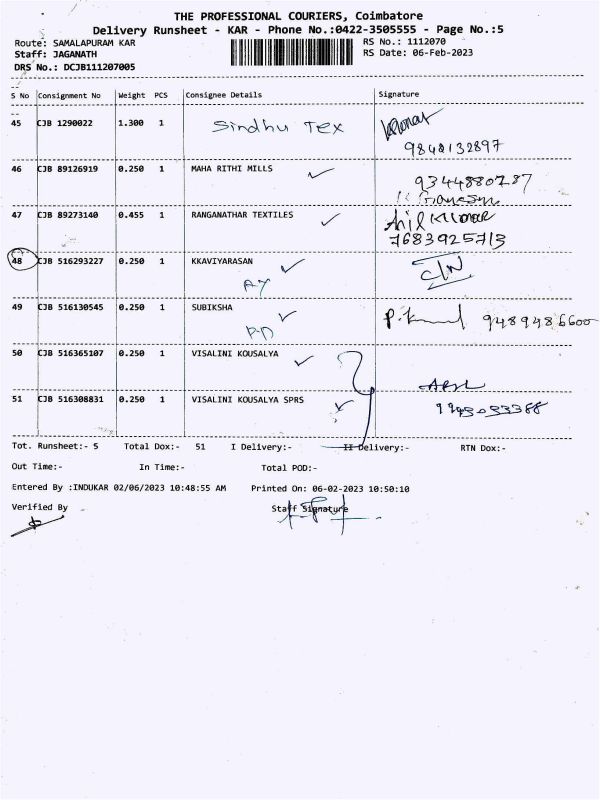 THE PROFESSIONAL COURIERS, Coimbatore
Delivery Runsheet - KAR - Phone No.:0422-3505555 - Page No.:5
Route: SAMALAPURAM KAR RS No.: 1112070
Staff: JAGANATH RS Date: 06-Feb-2023
DRS No.: DCJB111207005
S No Consignment No Weight PCS Consignee Details Signature
45 CJB 1290022 1.300 1 Sindhu Tex
9840132897
46 CJB 89126919 0.250 1 MAHA RITHI MILLS 9344880287
47 CJB 89273140 0.455 1 RANGANATHAR TEXTILES Anil Kumar
7683925713
48 CJB 516293227 0.250 1 KKAVIYARASAN C/N
49 CJB 516130545 0.250 1 SUBIKSHA 9489486600
50 CJB 516365107 0.250 1 VISALINI KOUSALYA
51 CJB 516308831 0.250 1 VISALINI KOUSALYA SPRS
Tot. Runsheet:- 5 Total Dox:- 51 I Delivery:- II Delivery:- RTN Dox:-
Out Time:- In Time:- Total POD:-
Entered By :INDUKAR 02/06/2023 10:48:55 AM Printed On: 06-02-2023 10:50:10
Verified By Staff Signature